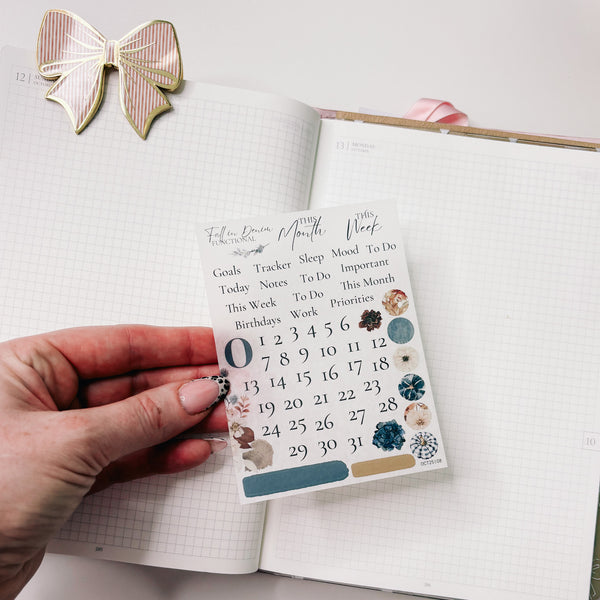 12
13 MONDAY
Fall in Denim
FUNCTIONAL
THIS
Month
THIS
Week
Goals Tracker Sleep Mood To Do
Today Notes To Do Important
This Week To Do This Month
Birthdays Work Priorities
O
1 2 3 4 5 6
7 8 9 10 11 12
13 14 15 16 17 18
19 20 21 22 23
24 25 26 27 28
29 30 31
OCT25108
10